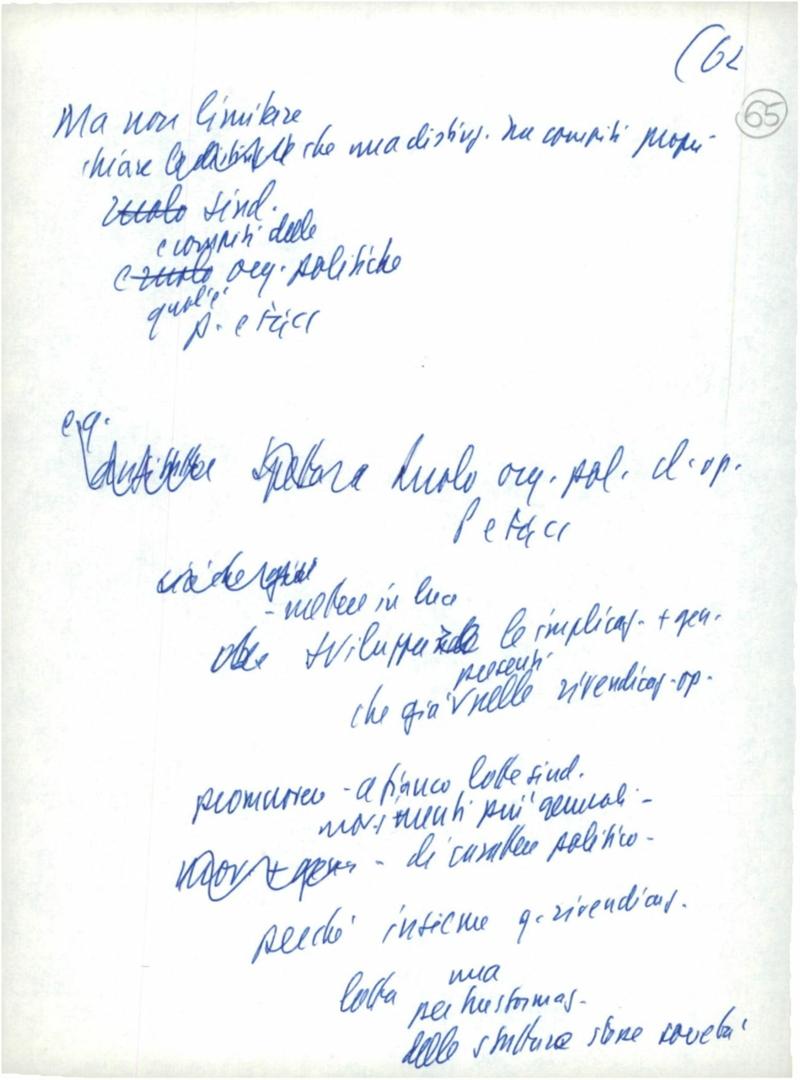 (62
65
Ma non limitare
che una disting. tra compiti propri
ruolo sind.
e compiti delle
e ruolo org. politiche
quali
p. e
e q.
Spettava ruolo org. pol. cl. op.
P e
- mettere in luce
sviluppando le implicaz. + gen.
presenti
che già nelle rivendicaz. op.
promuovere - a fianco lotte sind.
movimenti più generali -
mov + gen - di carattere politico -
perché insieme q. rivendicaz.
lotta una
per trasformaz.
delle strutture società